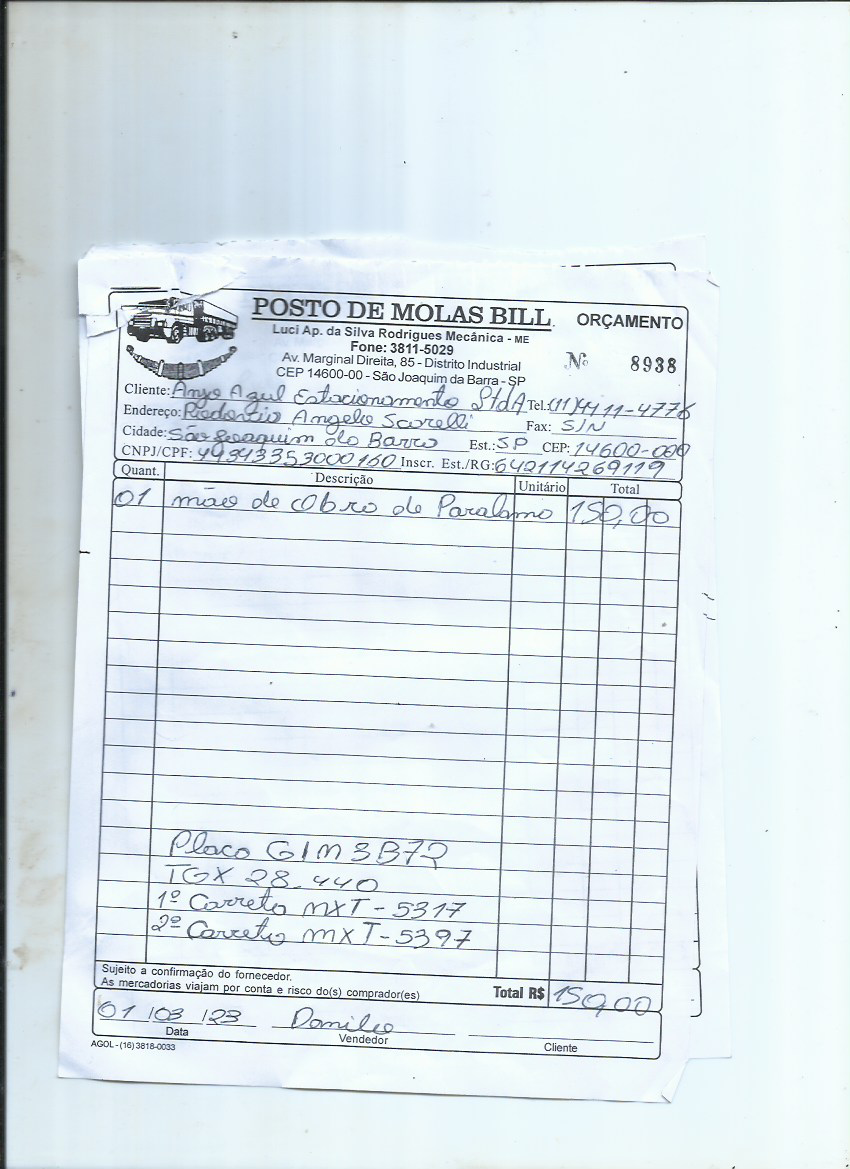 POSTO DE MOLAS BILL
ORÇAMENTO
Luci Ap. da Silva Rodrigues Mecânica - ME
Fone: 3811-5029
Av. Marginal Direita, 85 - Distrito Industrial
Nº 8938
CEP 14600-00 - São Joaquim da Barra - SP
Cliente: Anjo Azul Estacionamento LtdA Tel.: (11) 4411-4776
Endereço: Angelo Fax: S/N
Cidade: São Joaquim da Barra Est.: SP CEP: 14600-000
CNPJ/CPF: 49343353000160 Inscr. Est./RG: 642114269119
Quant. Descrição Unitário Total
01 mão de Obra de Paralama 150,00
Placa GIM3B72
TGX 28.440
1º Carreta MXT-5317
2º Carreta MXT-5397
Sujeito a confirmação do fornecedor.
As mercadorias viajam por conta e risco do(s) comprador(es)
Total R$ 150,00
01/03/23 Danilo
Data Vendedor Cliente
AGOL - (16) 3818-0033